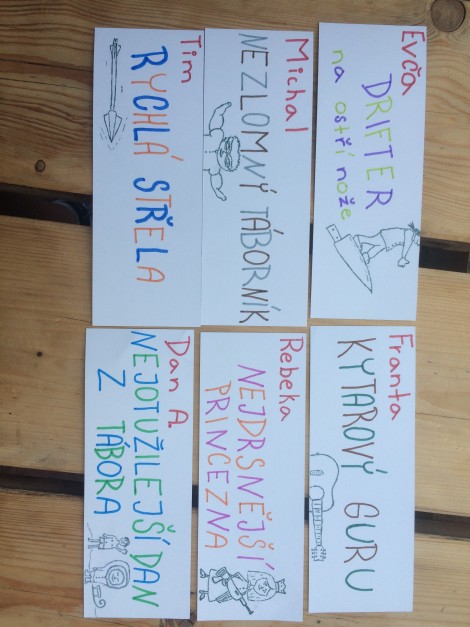 Evča
DRIFTER
na ostří nože
Franta
KYTAROVÝ GURU
Michal
NEZLOMNÝ TÁBORNÍK
Rebeka
NEJDRSNĚJŠÍ
PRINCEZNA
Tim
RYCHLÁ STŘELA
Dan A.
NEJOTUŽILEJŠÍ DAN
Z TÁBORA